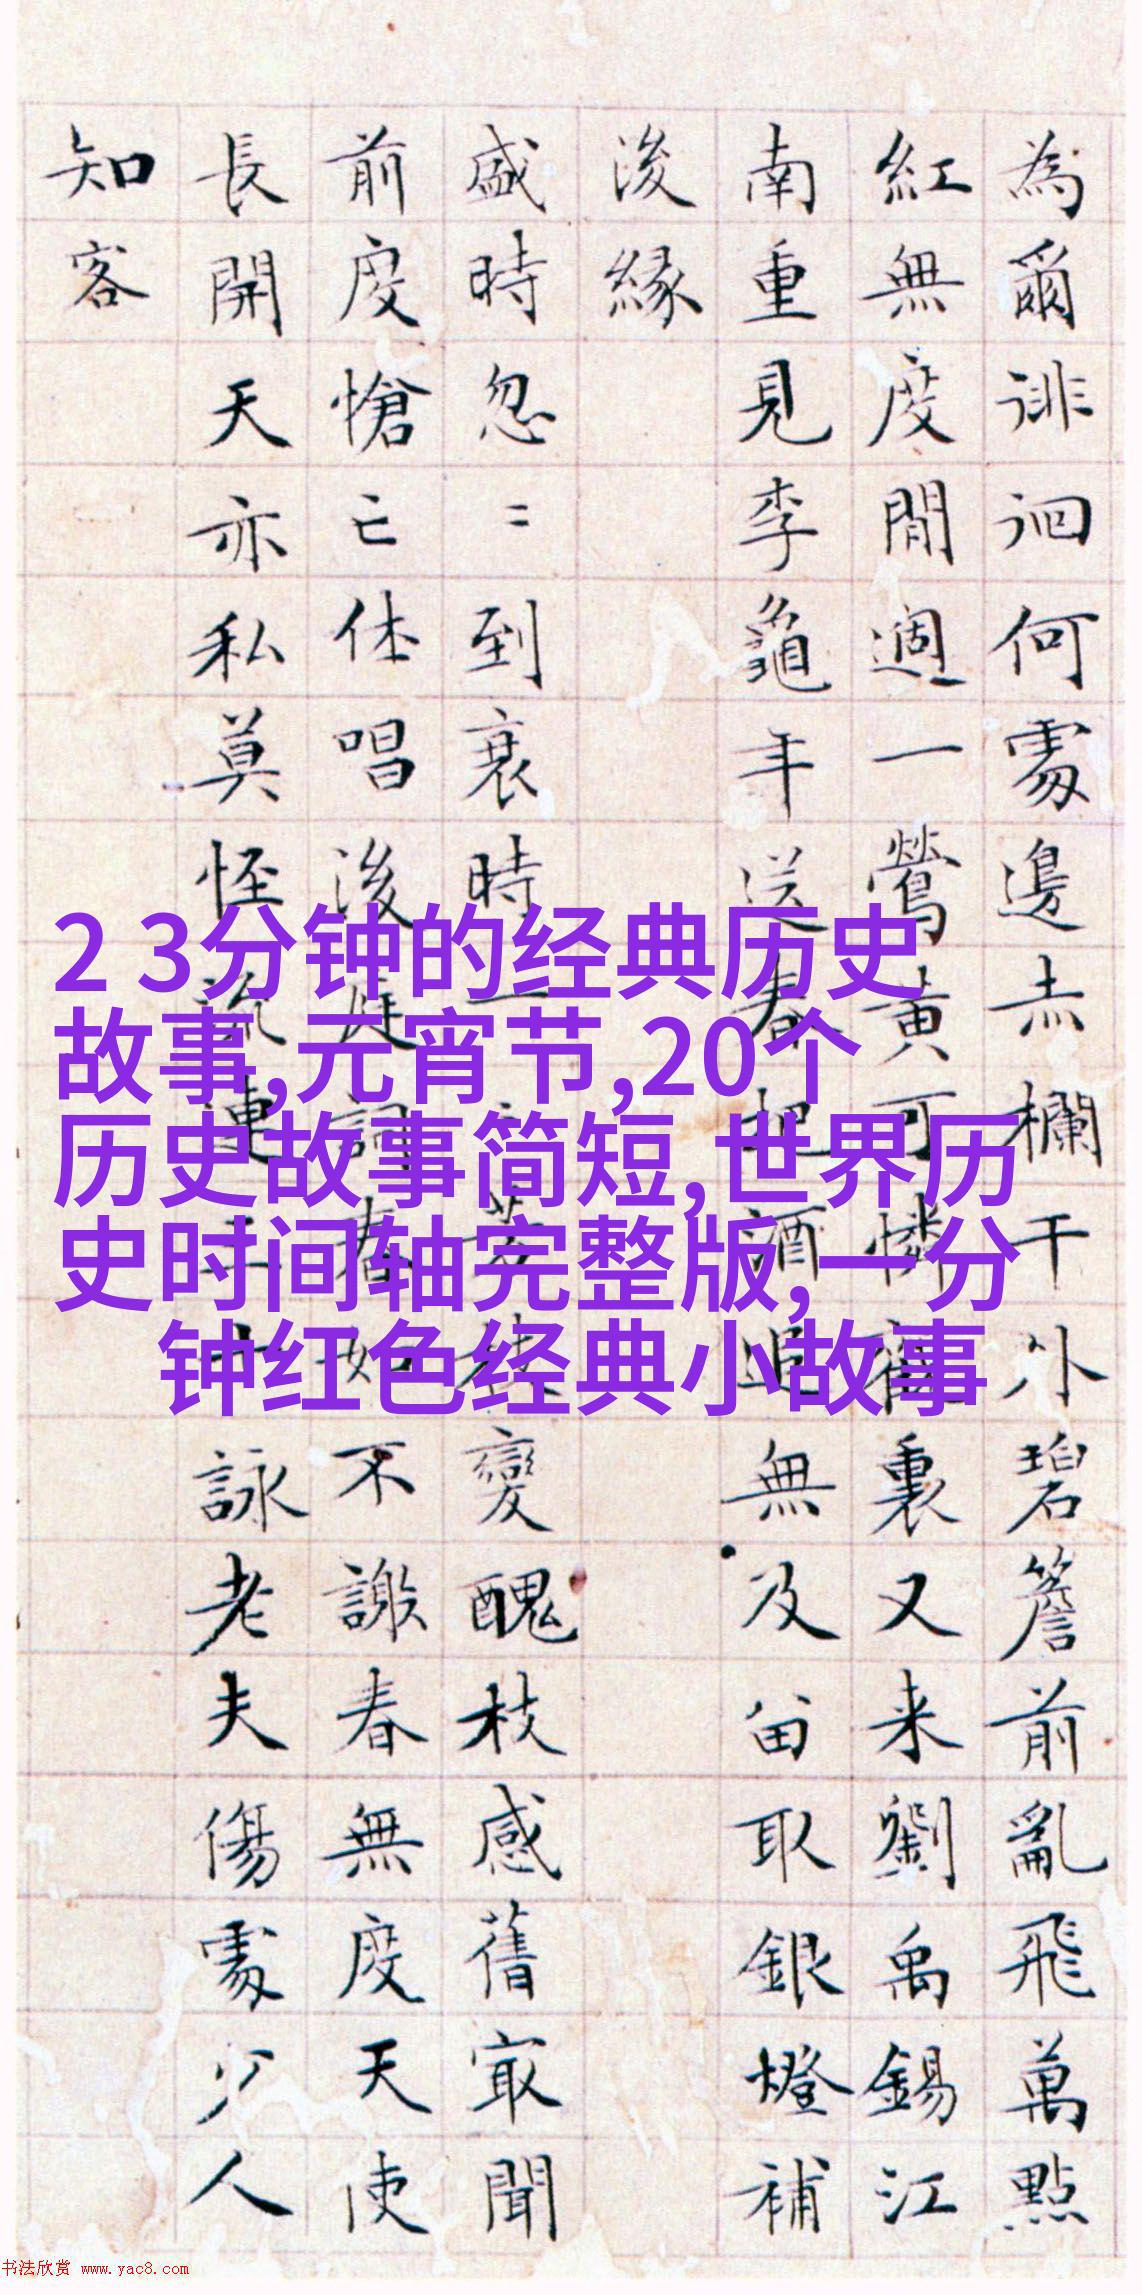 為爾徘徊何處邊赤欄干外碧簷前亂飛萬點
紅無度閒週一鶯黃可憐觀裏又来劉禹錫江
南重見李龜年送春把酒追無及留取銀燈補
後緣
盛時忽〻到衰時一一芳枝變醜枝感舊最聞
前度愴亡休唱後庭詞春如不謝春無度天使
長開天亦私莫怪流連三十詠老夫傷處少人
知客
2 3分钟的经典历史
故事,元宵节,20个
历史故事简短,世界历
史时间轴完整版,一分
钟红色经典小故事
书法欣赏 www.yac8.com